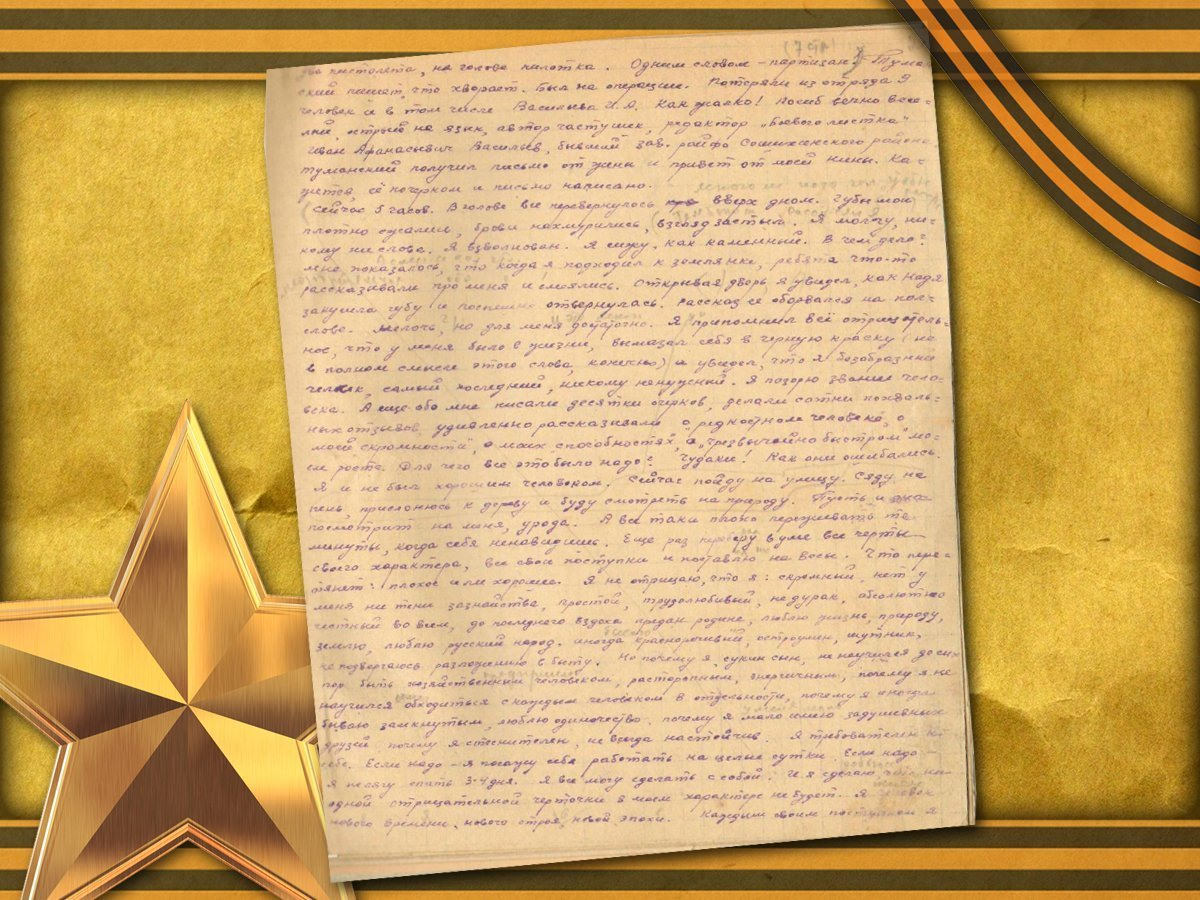 два пистолета, на голове пилотка. Одним словом – партизан. Тума-
ский пишет, что хворает. Был на операции. Потеряли из отряда 9
человек и в том числе Васильева И.А. Как жалко! Погиб вечно весе-
лый, острый на язык, автор частушек, редактор „Боевого листка"
Иван Афанасьевич Васильев, бывший зав. райфо Сошихинского района.
Туманский получил письмо от жены и привет от моей Нины. Ка-
жется, её почерком и письмо написано.
Сейчас 5 часов. В голове все перевернулось вверх дном. Губы мои
плотно сжались, брови нахмурились, взгляд застыл. Я могу, ни-
кому ни слова. Я взволнован. Я сижу, как каменный. В чем дело?
Мне показалось, что когда я подходил к землянке, ребята что-то
рассказывали про меня и смеялись. Открывая дверь, я увидел, как Надя
закусила губу и поспешно отвернулась. Рассказ её оборвался на полу-
слове. Мелочь, но для меня достаточно. Я припомнил всё отрицатель-
ное, что у меня было в жизни, вымазал себя в черную краску (не
в полном смысле этого слова, конечно) и увидел, что я безобразный
человек, самый последний, никому ненужный. Я позорю звание чело-
века. А еще обо мне писали десятки очерков, делали сотни похваль-
ных отзывов, удивленно рассказывали о „редкостном человеке", о
„моей скромности", о моих способностях, о „чрезвычайно быстром" мо-
ем росте. Для чего все это было надо? Чудаки! Как они ошибались.
Я и не был хорошим человеком. Сейчас пойду на улицу. Сяду на
пень, прислонюсь к дереву и буду смотреть на природу. Пусть и она
посмотрит на меня, урода. А все таки плохо переживать те
минуты, когда себя ненавидишь. Еще раз переберу в уме все черты
своего характера, все свои поступки и поставлю на весы. Что пере-
тянет: плохое или хорошее. Я не отрицаю, что я: скромный, нет у
меня ни тени зазнайства, простой, трудолюбивый, не дурак, абсолютно
честный во всем, до последнего вздоха предан родине, люблю жизнь, природу,
землю, люблю русский народ. Иногда красноречивый, остроумен, шутник,
не подвергаюсь разложению в быту. Но почему я, сукин сын, не научился до сих
пор быть хозяйственным человеком, расторопным, энергичным, почему я не
научился обходиться с каждым человеком в отдельности, почему я иногда
бываю замкнутым, люблю одиночество, почему я мало имею задушевных
друзей, почему я стеснителен, не всегда настойчив. Я требователен к
себе. Если надо – я посажу себя работать на целые сутки. Если надо –
я не лягу спать 3-4 дня. Я все могу сделать с собой. И я сделаю, что ни
одной отрицательной черточки в моем характере не будет. Я человек
нового времени, нового строя, новой эпохи. Каждым своим поступком я